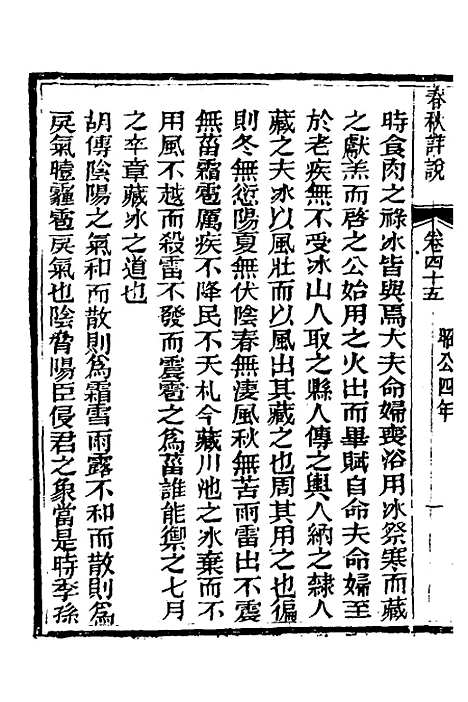 春秋詳說
卷四十五
昭公四年
一
時食肉之祿冰皆與焉大夫命婦喪浴用冰祭寒而藏
之獻羔而啓之公始用之火出而畢賦自命夫命婦至
於老疾無不受冰山人取之縣人傳之輿人納之隸人
藏之夫冰以風壯而以風出其藏之也周其用之也徧
則冬無愆陽夏無伏陰春無淒風秋無苦雨雷出不震
無菑霜雹厲疾不降民不夭札今藏川池之冰棄而不
用風不越而殺雷不發而震雹之為菑誰能禦之七月
之卒章藏冰之道也
胡傳陰陽之氣和而散則為霜雪雨露不和而散則為
戾氣曀霾雹戾氣也陰脅陽臣侵君之象當是時季孫